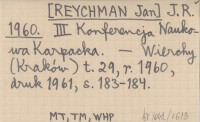 [REYCHMAN Jan] J.R.
1960. III Konferencja Nauko-
wa Karpacka. — Wierchy
(Kraków) t. 29, r. 1960,
druk 1961, s. 183-184.
MT, TM, WHP